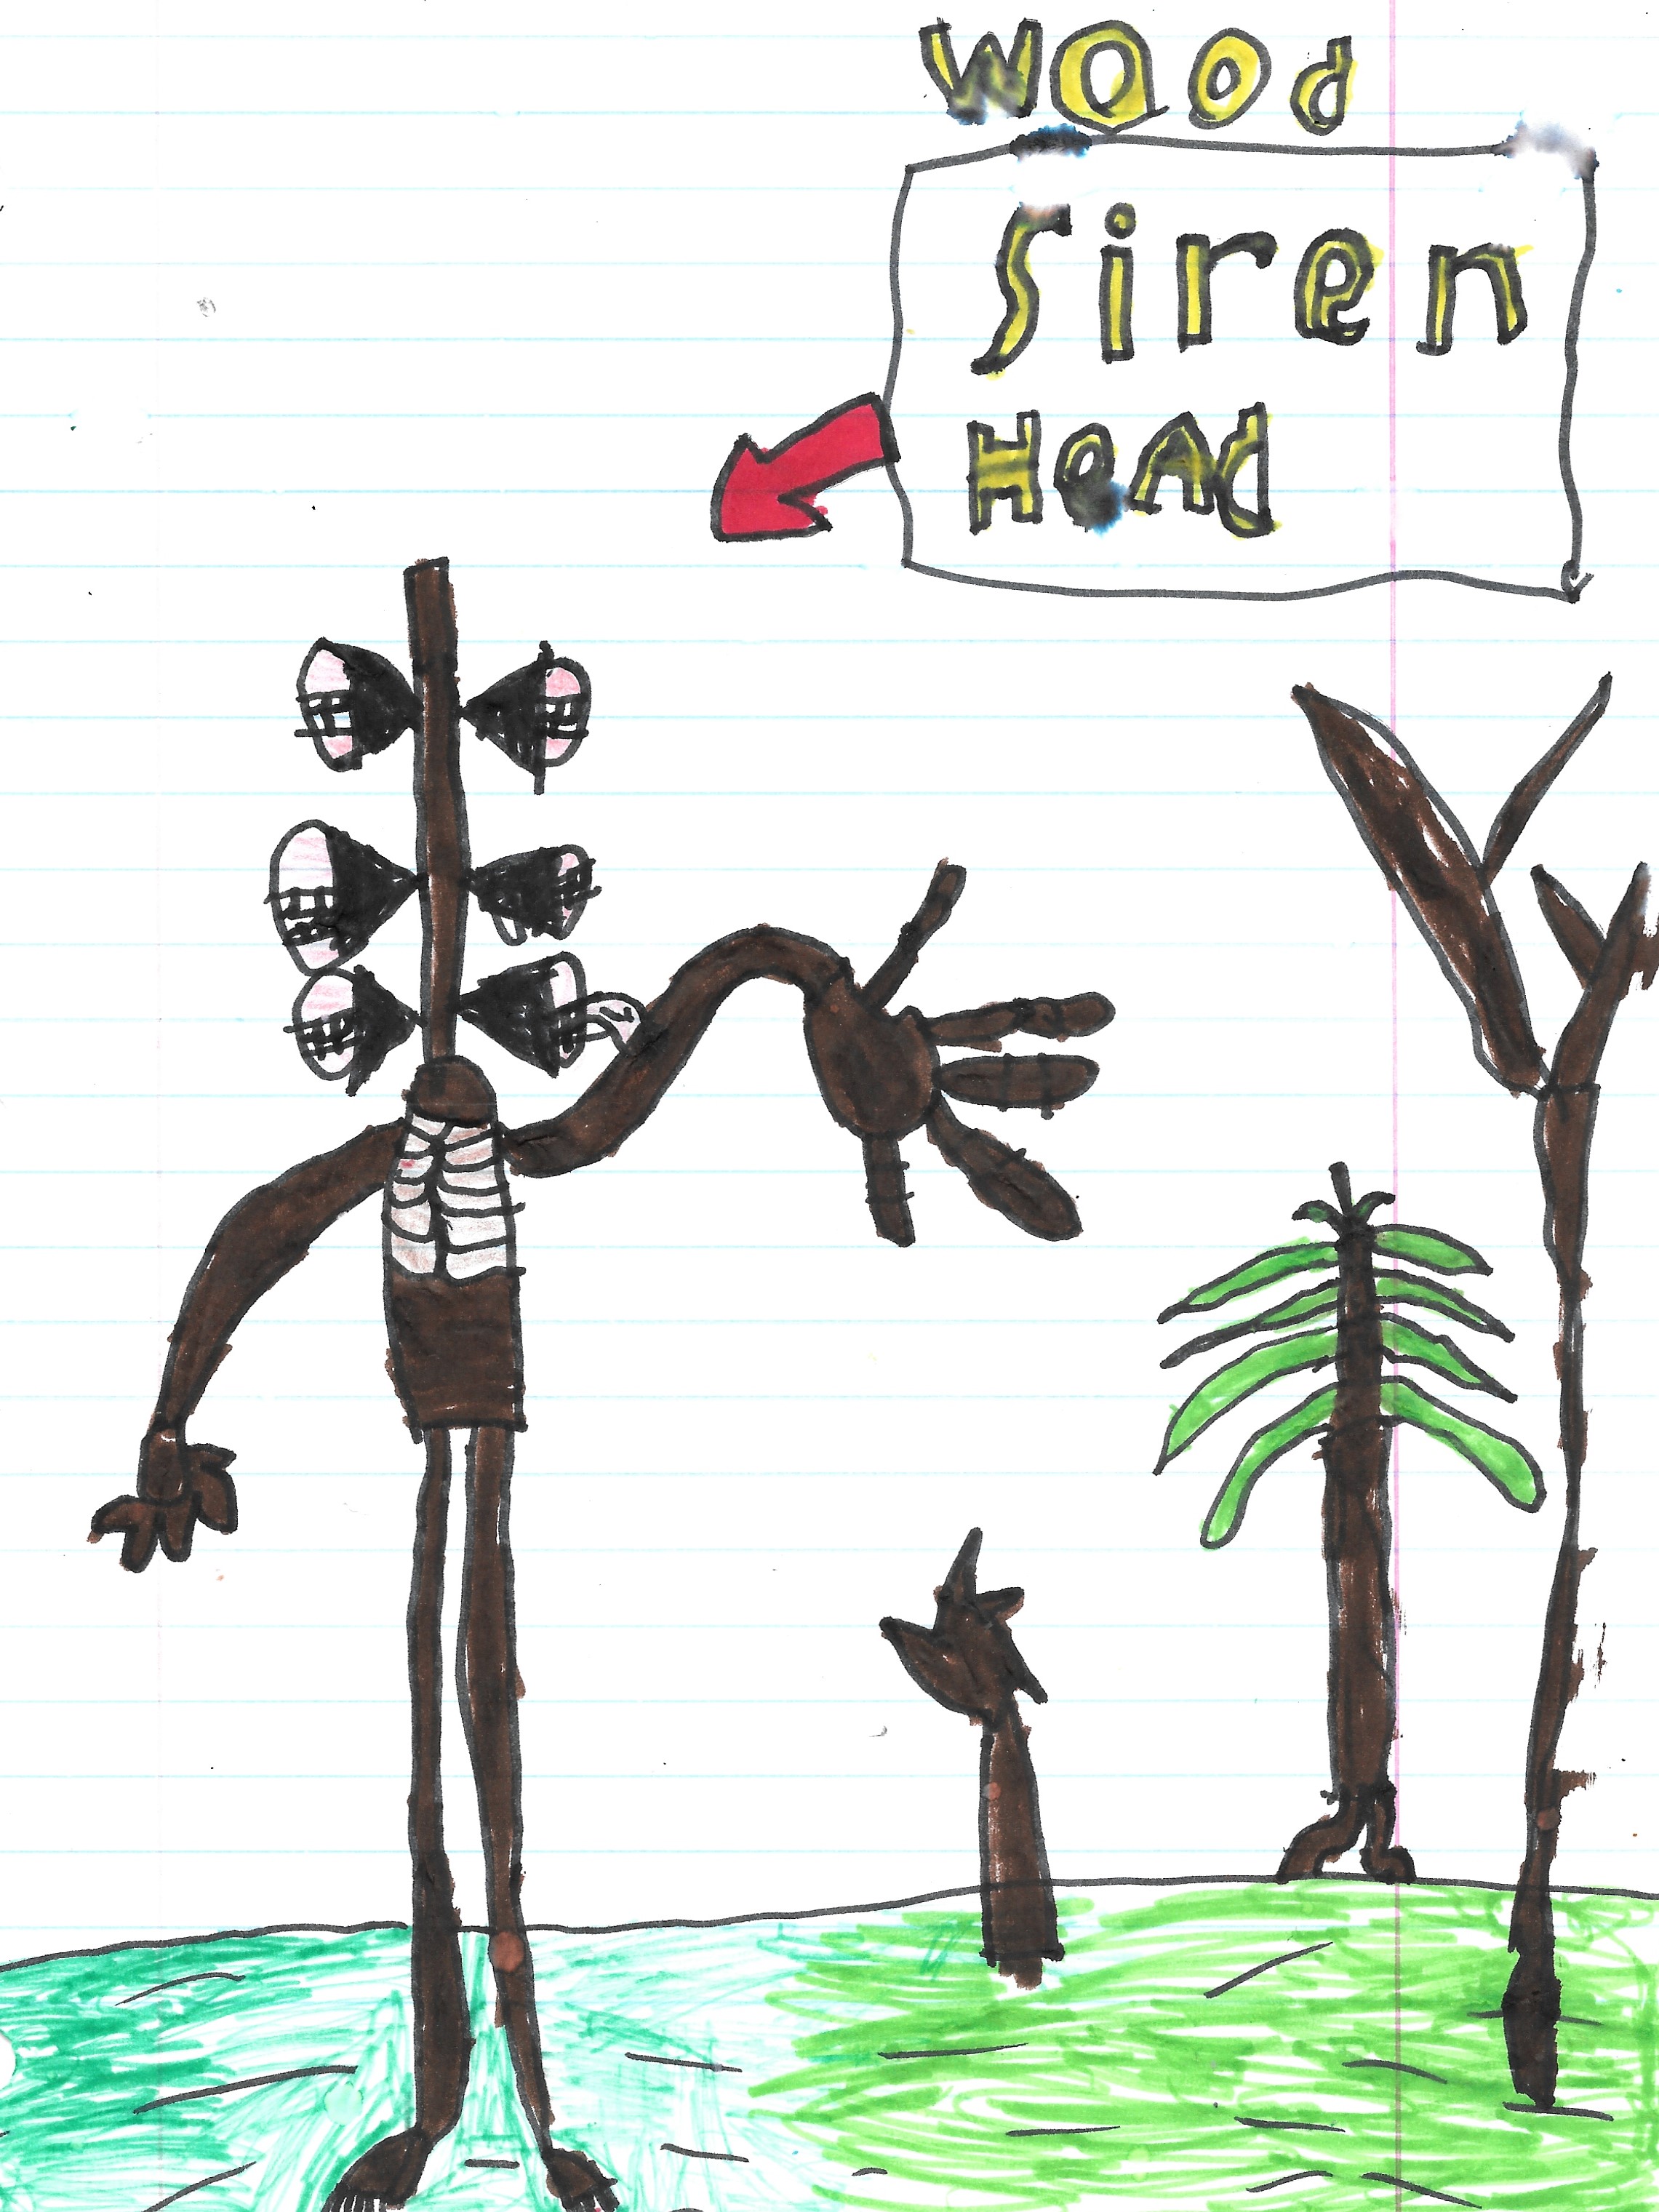 wood
Siren
HeAd